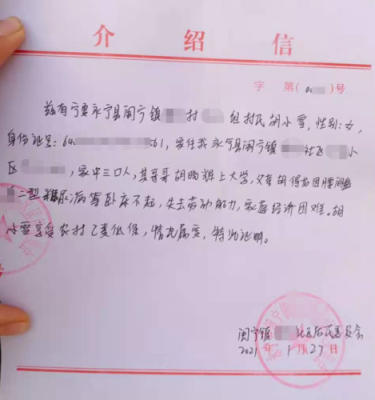 介绍信
字 第( )号
兹有宁夏永宁县闽宁镇 村 组村民胡小雪,性别:女,
身份证号:64 61,家住我永宁县闽宁镇 社区 小
区 ,家中三口人,其哥哥胡 上大学,父亲胡 因
二型糖尿病常卧床不起,失去劳动能力,家庭经济困难。胡
小雪享受农村乙类低保,情况属实,特此证明。
闽宁镇 社区居民委员会
2021年1月27日